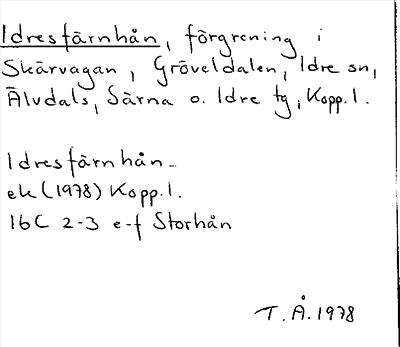 Idresfärnhån, förgrening i
Skärvagan, Gröveldalen, Idre sn,
Älvdals, Särna o. Idre tg, Kopp. l.
Idresfärnhån -
ek (1978) Kopp. l.
16C 2-3 e-f Storhån
T. Å. 1978